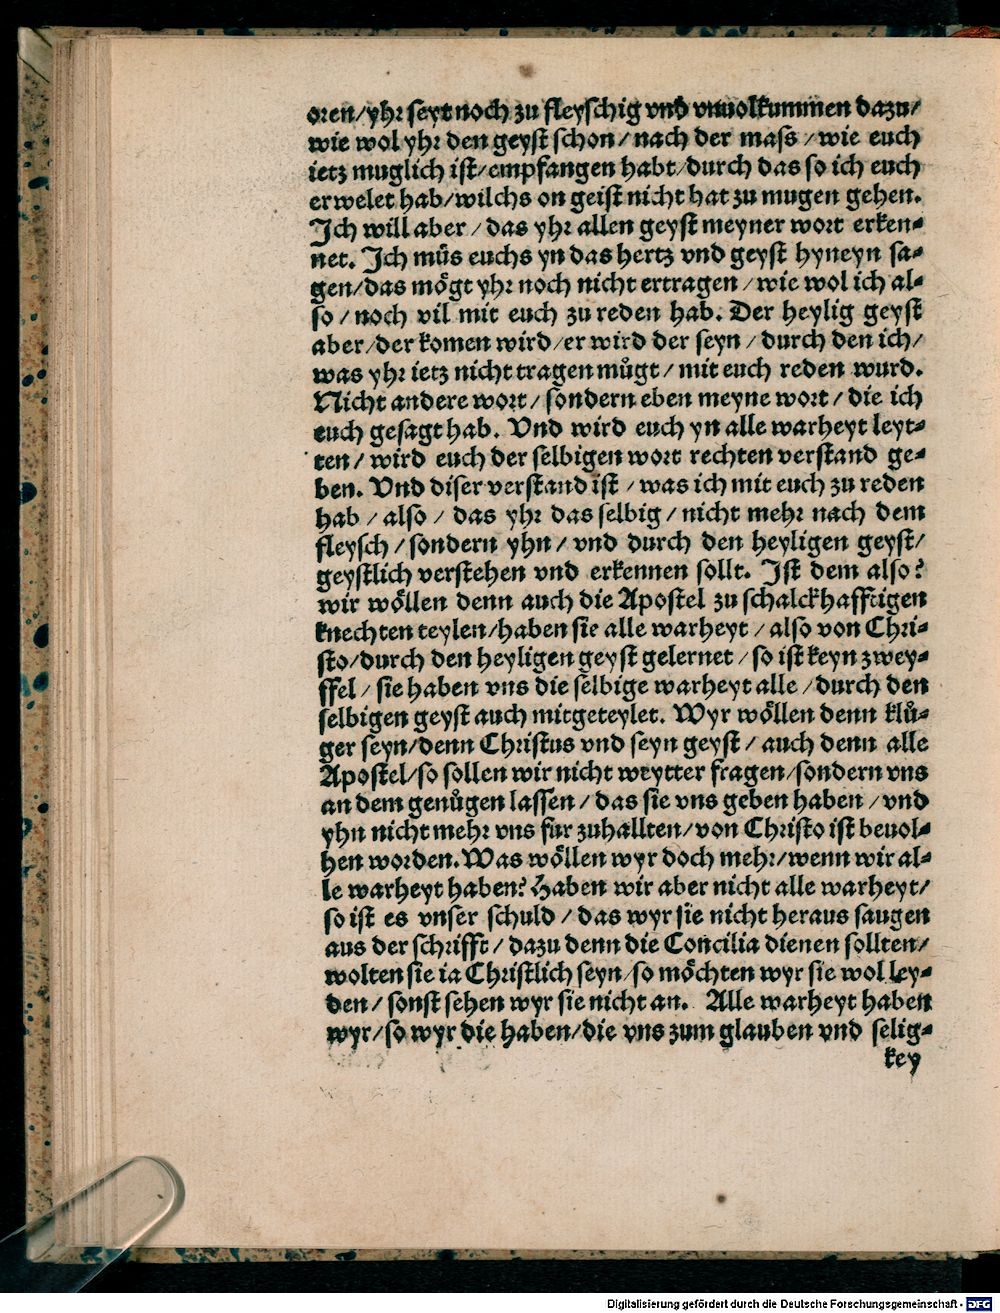 oren/yhr seyt noch zu fleyschig vnd vnuolkummen dazu/
wie wol yhr den geyst schon/nach der mass/wie euch
ietz muglich ist/empfangen habt/durch das so ich euch
erwelet hab/wilchs on geist nicht hat zu mugen gehen.
Ich will aber/das yhr allen geyst meyner wort erken-
net. Ich muͤs euchs yn das hertz vnd geyst hyneyn sa-
gen/das moͤgt yhr noch nicht ertragen/wie wol ich al-
so/noch vil mit euch zu reden hab. Der heylig geyst
aber/der komen wird/er wird der seyn/durch den ich/
was yhr ietz nicht tragen muͤgt/mit euch reden wurd.
Nicht andere wort/sondern eben meyne wort/die ich
euch gesagt hab. Vnd wird euch yn alle warheyt leyt-
ten/wird euch der selbigen wort rechten verstand ge-
ben. Vnd diser verstand ist/was ich mit euch zu reden
hab/also/das yhr das selbig/nicht mehr nach dem
fleysch/sondern yhn/vnd durch den heyligen geyst/
geystlich verstehen vnd erkennen sollt. Ist dem also?
wir woͤllen denn auch die Apostel zu schalckhafftigen
knechten teylen/haben sie alle warheyt/also von Chri-
sto/durch den heyligen geyst gelernet/so ist keyn zwey-
ffel/sie haben vns die selbige warheyt alle/durch den
selbigen geyst auch mitgeteylet. Wyr woͤllen denn kluͤ-
ger seyn/denn Christus vnd seyn geyst/auch denn alle
Apostel/so sollen wir nicht weytter fragen/sondern vns
an dem genuͤgen lassen/das sie vns geben haben/vnd
yhn nicht mehr vns fur zuhallten/von Christo ist beuol-
hen worden. Was woͤllen wyr doch mehr/wenn wir al-
le warheyt haben? Haben wir aber nicht alle warheyt/
so ist es vnser schuld/das wyr sie nicht heraus saugen
aus der schrifft/dazu denn die Concilia dienen sollten/
wolten sie ia Christlich seyn/so moͤchten wyr sie wol ley-
den/sonst sehen wyr sie nicht an. Alle warheyt haben
wyr/so wyr die haben/die vns zum glauben vnd selig-
key
Digitalisierung gefördert durch die Deutsche Forschungsgemeinschaft - DFG